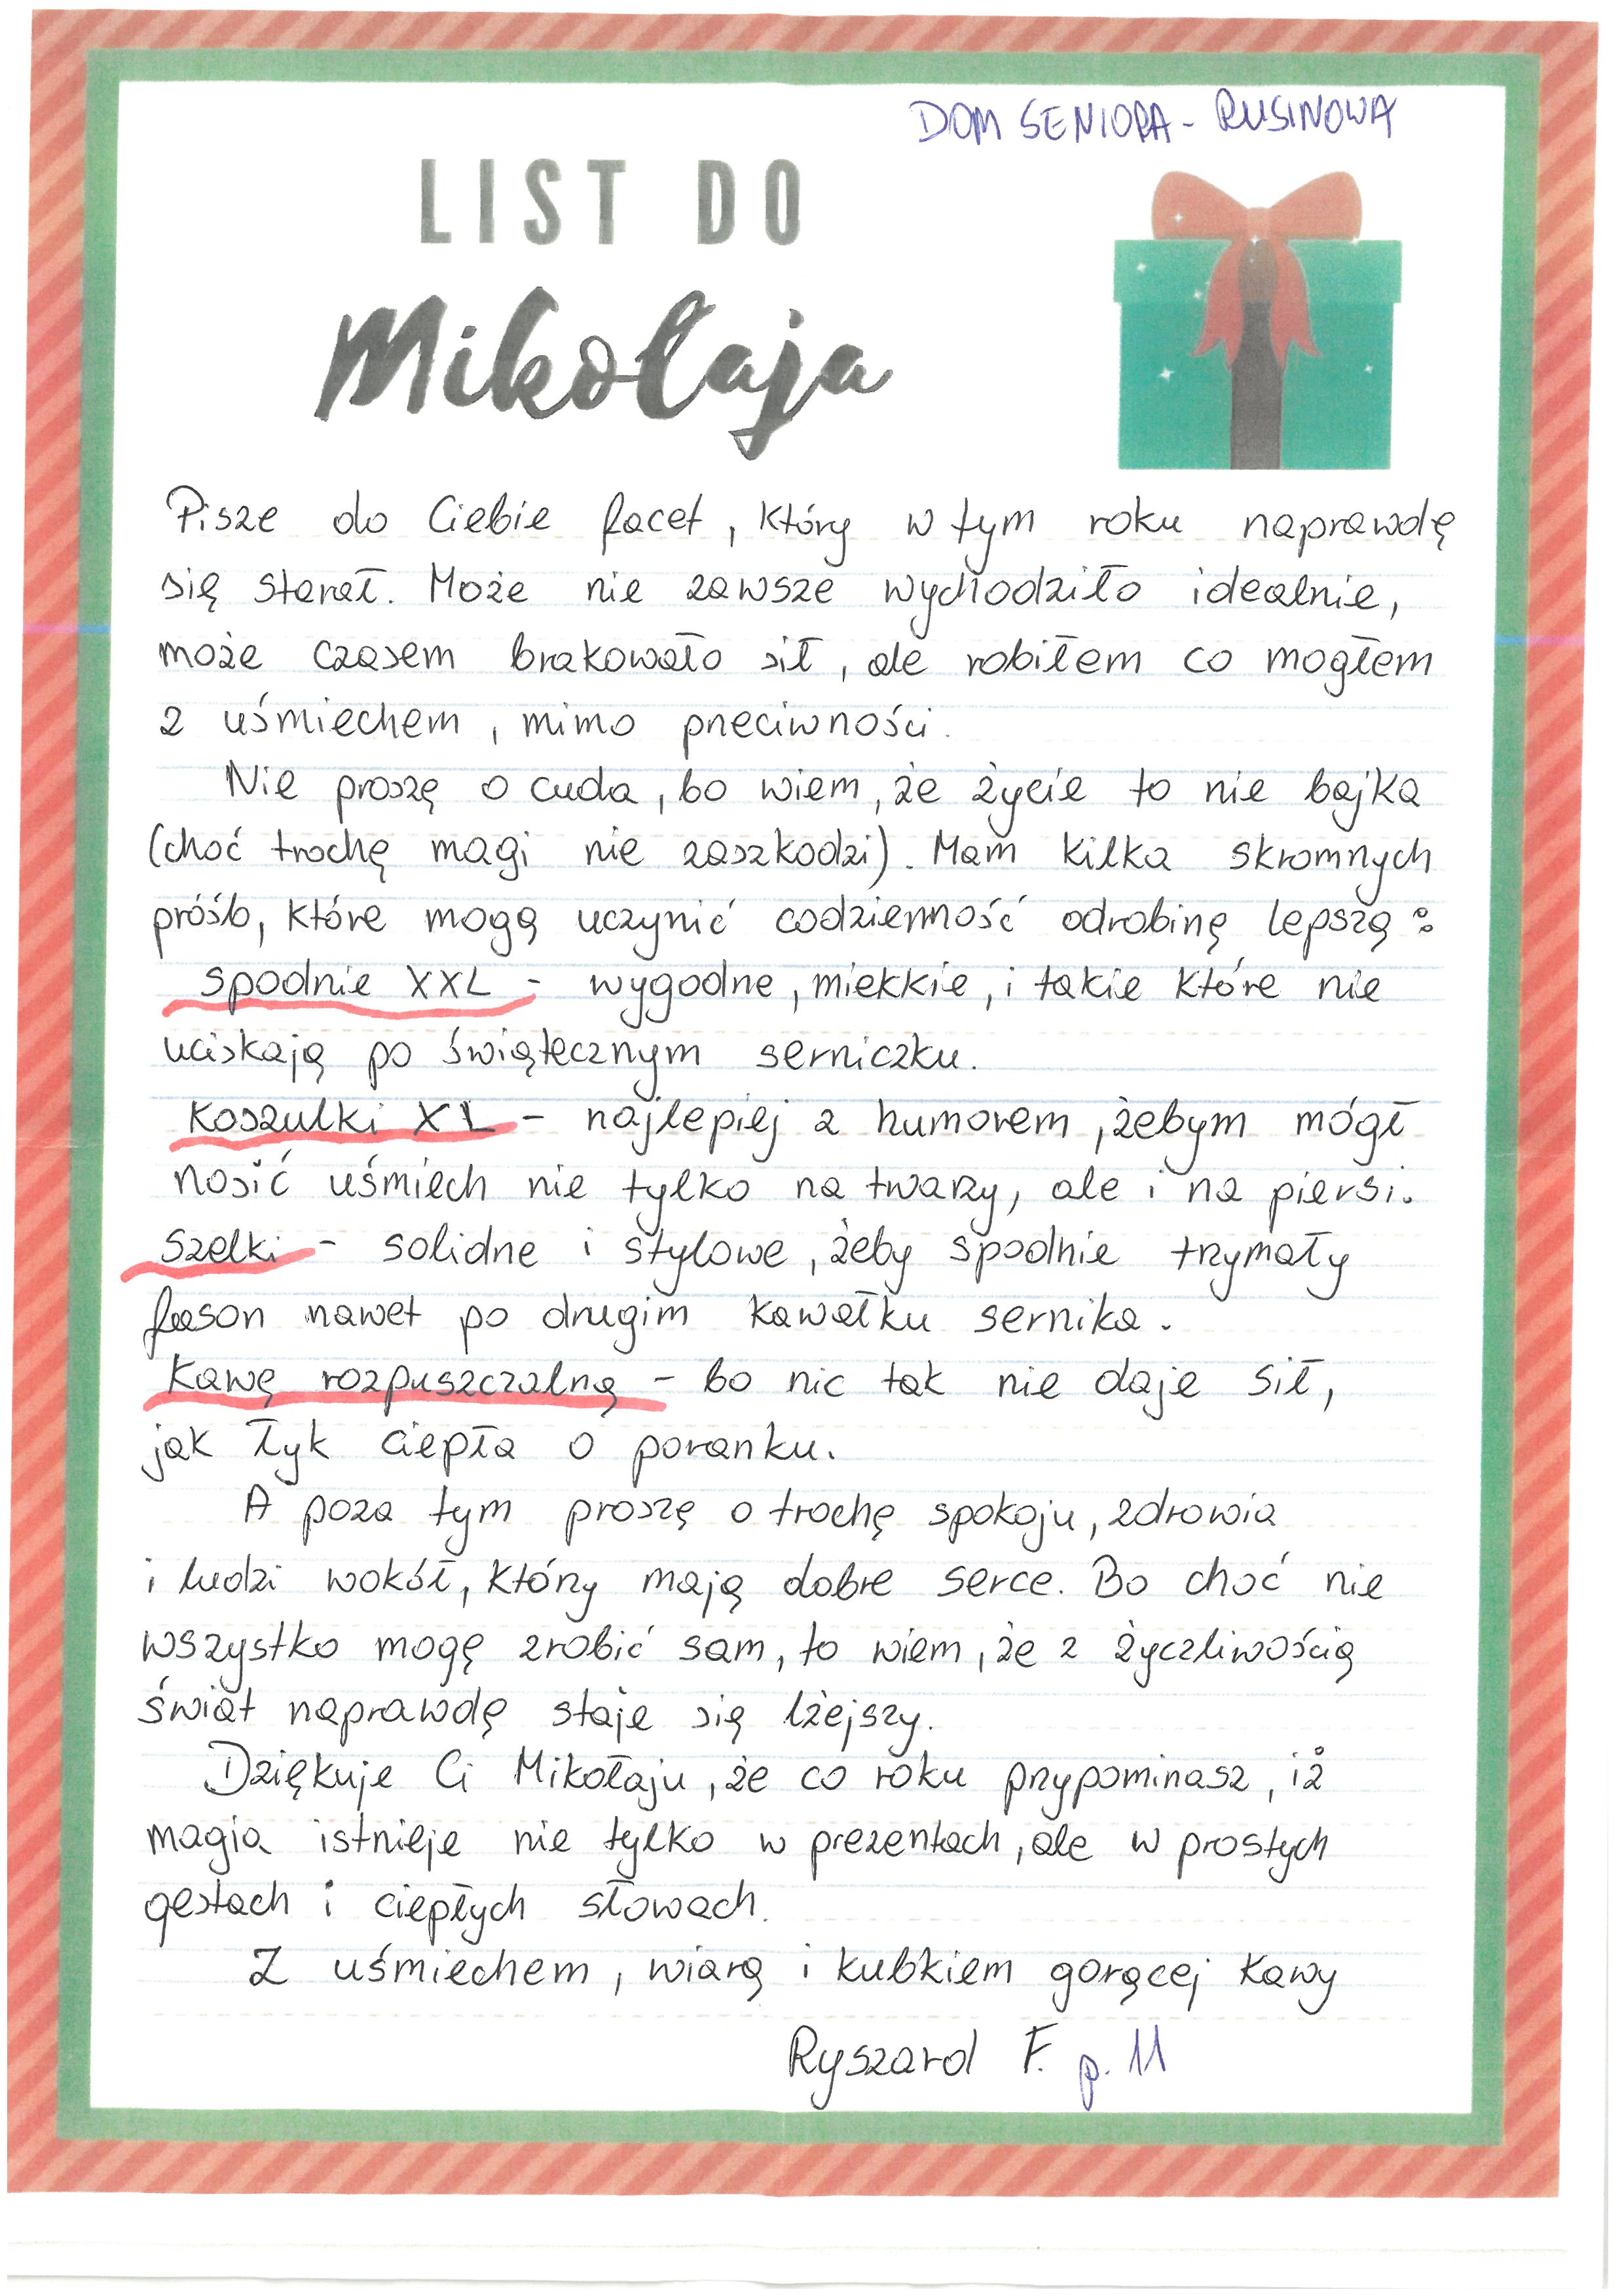 DOM SENIORA - RUSINOWA
LIST DO
Mikołaja
Pisze do Ciebie facet, który w tym roku naprawdę
się starał. Może nie zawsze wychodziło idealnie,
może czasem brakowało sił, ale robiłem co mogłem
z uśmiechem, mimo przeciwności.
Nie proszę o cuda, bo wiem, że życie to nie bajka
(choć trochę magi nie zaszkodzi). Mam kilka skromnych
próśb, które mogą uczynić codzienność odrobinę lepszą:
spodnie XXL - wygodne, miekkie, i takie które nie
uciskają po świątecznym serniczku.
Koszulki XL - najlepiej z humorem, żebym mógł
nosić uśmiech nie tylko na twarzy, ale i na piersi.
Szelki - solidne i stylowe, żeby spodnie trzymały
fason nawet po drugim kawałku sernika.
Kawę rozpuszczalną - bo nic tak nie daje sił,
jak łyk ciepła o poranku.
A poza tym proszę o trochę spokoju, zdrowia
i ludzi wokół, którzy mają dobre serce. Bo choć nie
wszystko mogę zrobić sam, to wiem, że z życzliwością
świat naprawdę staje się lżejszy.
Dziękuje Ci Mikołaju, że co roku przypominasz, iż
magia istnieje nie tylko w prezentach, ale w prostych
gestach i ciepłych słowach.
Z uśmiechem, wiarą i kubkiem gorącej kawy
Ryszard F. p. 11